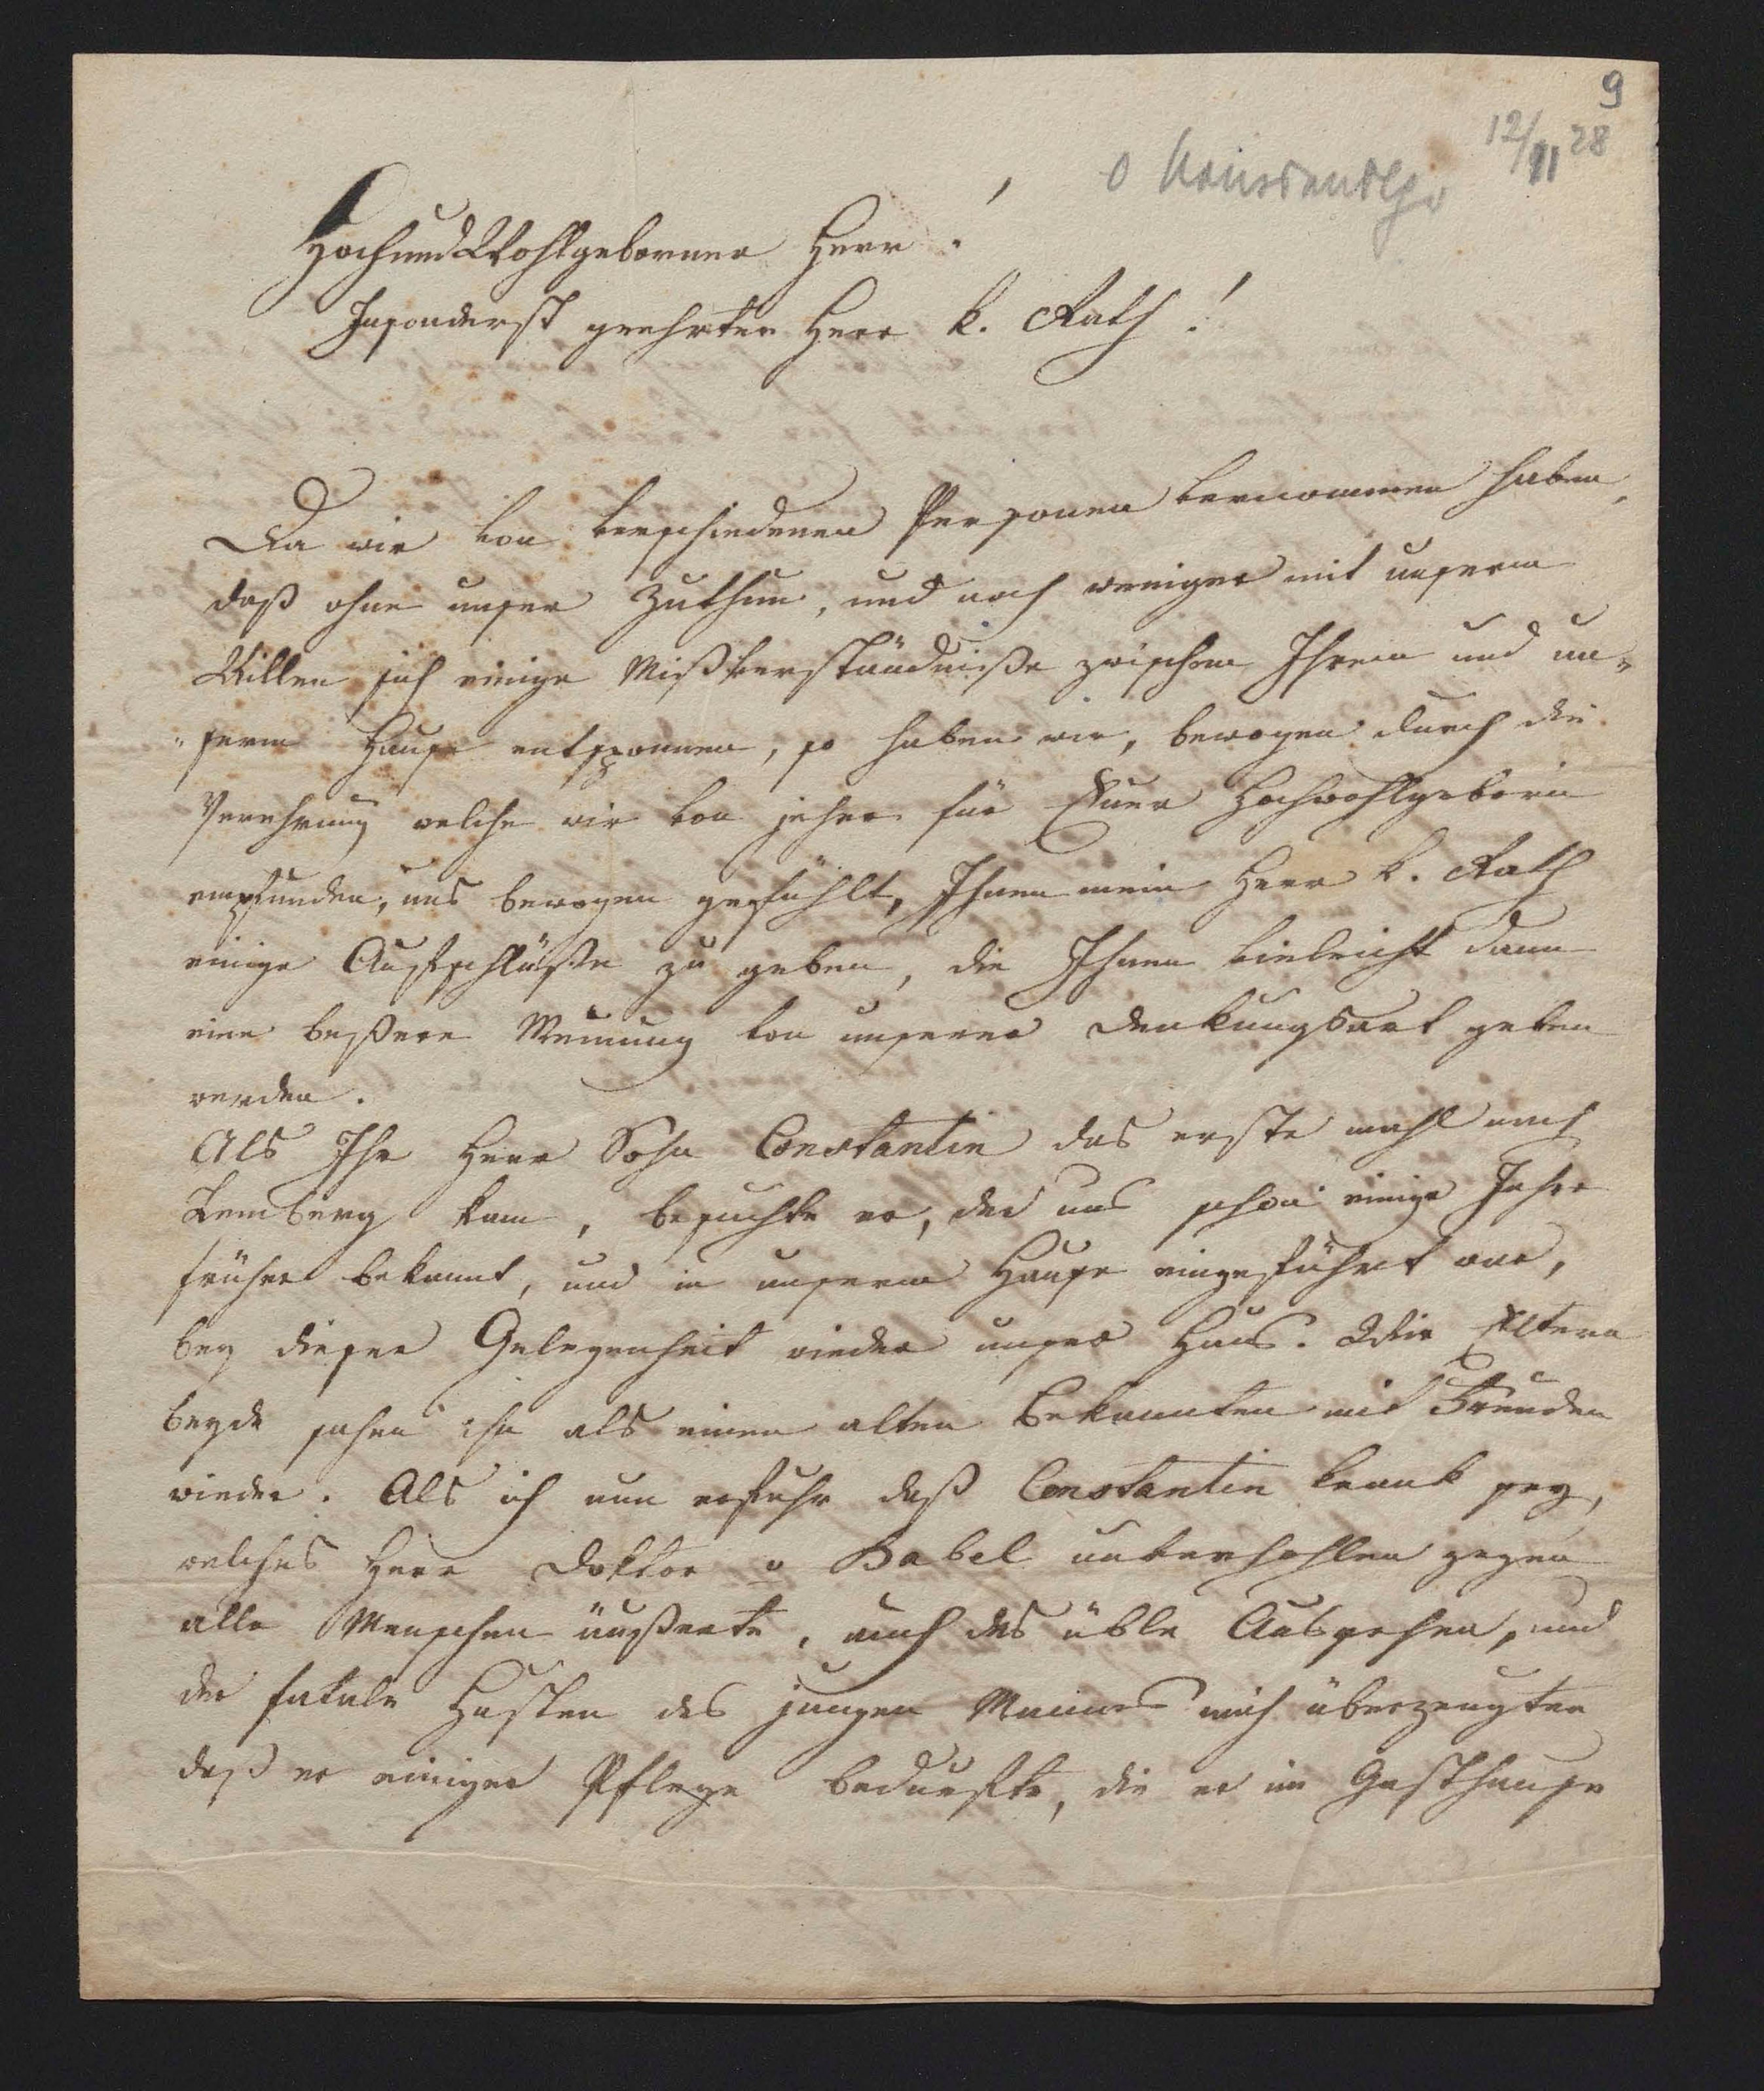 9
12/11 28
Hochund Wohlgeborner Herr!
Insonderst geehrter Herr k. Rath!
Da wir von verschiedenen Personen vernommen haben,
daß ohne unser Zuthun, und noch weniger mit unserm
Willen sich einige Mißverständniße zwischen Ihrem und un„
„serm Hause entsponnen, so haben wir, bewogen durch die
Verehrung welche wir von jeher für Euer Hochwohlgeborn
empfunden, uns bewogen gefühlt, Ihnen mein Herr k. Rath
einige Aufschlüße zu geben, die Ihnen vieleicht dann
eine beßere Meinung von unserer Denkungsart geben
werden.
Als Ihr Herr Sohn Constantin das erste mahl nach
Lemberg kam, besuchte er, der uns schon einige Jahre
früher bekannt, und in unserm Hause eingeführt war,
bey dieser Gelegenheit wieder unser Haus. Wir Eltern
beyde sahen ihn als einen alten Bekannten mit Freuden
wieder. Als ich nun erfuhr daß Constantin krank sey,
welches Herr Doktor v Babel unverhohlen gegen
alle Menschen äußerte, auch das üble Aussehen, und
der fatale Husten des jungen Mannes mich überzeugten
daß er einiger Pflege bedurfte, die er im Gasthause